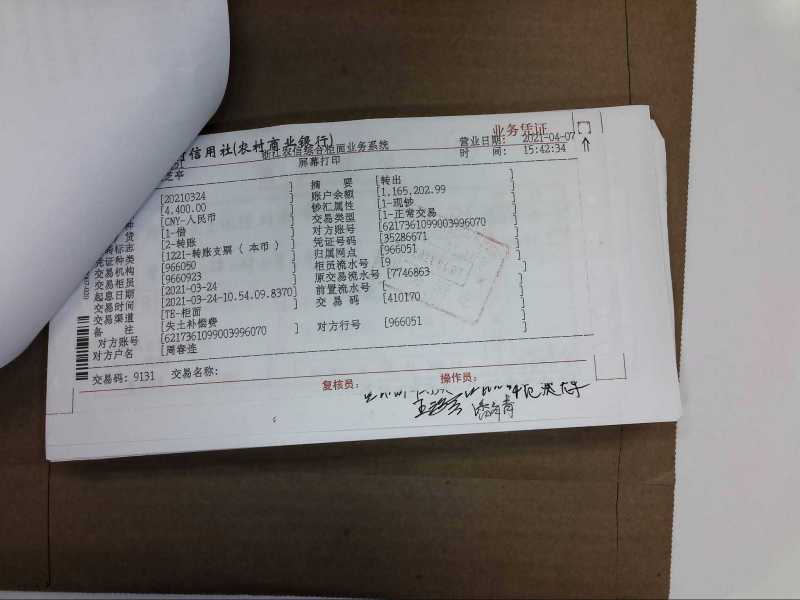 业务凭证
信用社(农村商业银行)
浙江农信综合柜面业务系统 营业日期: 2021-04-07
屏幕打印 时 间: 15:42:34
[20210324 ] 摘 要 [转出 ]
[4,400.00 ] 账户余额 [1,165,202.99 ]
种 [CNY-人民币 ] 钞汇属性 [1-现钞 ]
贷 [1-借 ] 交易类型 [1-正常交易 ]
标志 [2-转账 ] 对方账号 [6217361099003996070 ]
凭证种类 [1221-转账支票(本币) ] 凭证号码 [35286671 ]
交易机构 [966050 ] 归属网点 [966051 ]
交易柜员 [9660923 ] 柜员流水号 [9 ]
起息日期 [2021-03-24 ] 原交易流水号 [7746863 ]
交易时间 [2021-03-24-10.54.09.8370] 前置流水号 [ ]
交易渠道 [TE-柜面 ] 交 易 码 [410170 ]
备 注 [失土补偿费 ]
对方账号 [6217361099003996070 ] 对方行号 [966051 ]
对方户名 [周春连 ]
交易码: 9131 交易名称:
复核员: 操作员: